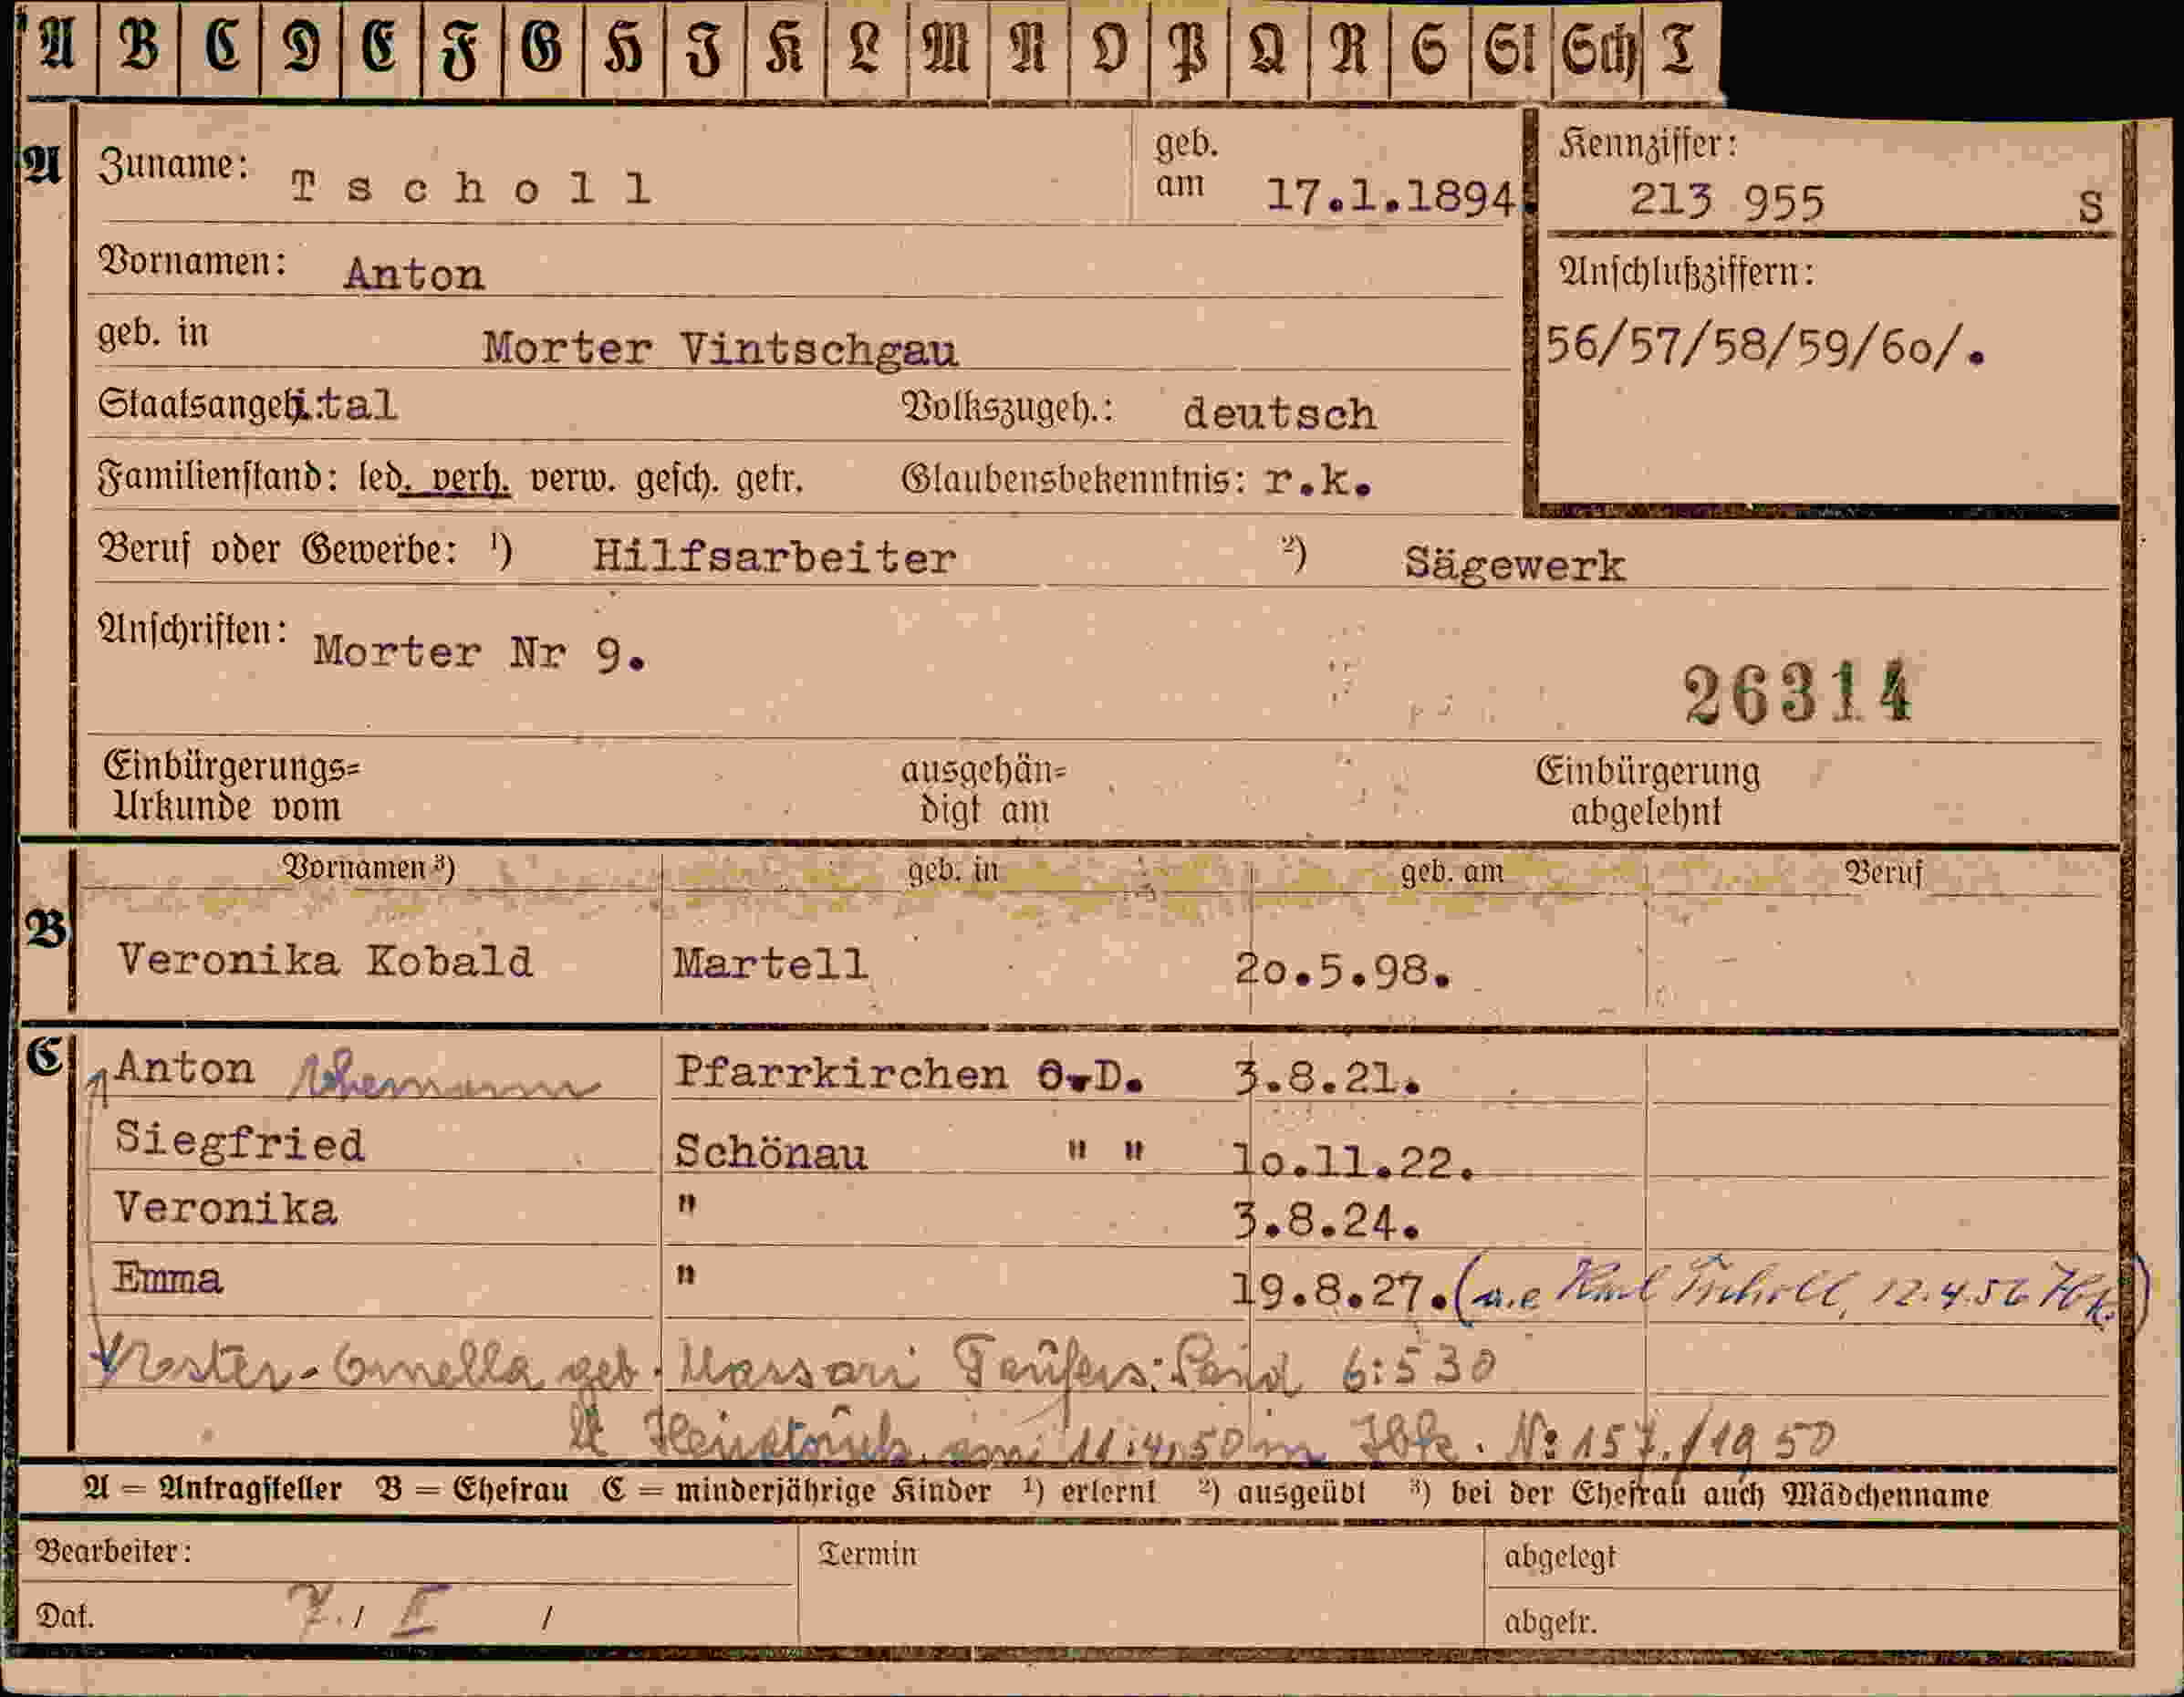 A B C D E F G H J K L M N O P Q R S St Sch T
A Zuname: Tscholl geb. am 17.1.1894. Kennziffer: 213 955 S
Vornamen: Anton Anschlußziffern:
geb. in Morter Vintschgau 56/57/58/59/60/.
Staatsangeh.: ital Volkszugeh.: deutsch
Familienstand: led. verh. verw. gesch. getr. Glaubensbekenntnis: r.k.
Beruf oder Gewerbe: 1) Hilfsarbeiter 2) Sägewerk
Anschriften: Morter Nr 9.
26314
Einbürgerungs= ausgehän= Einbürgerung
Urkunde vom digt am abgelehnt
Vornamen 3) geb. in geb. am Beruf
B Veronika Kobald Martell 20.5.98.
C Anton Ehemann Pfarrkirchen O.D. 3.8.21.
Siegfried Schönau " " 10.11.22.
Veronika " 3.8.24.
Emma " 19.8.27. Tscholl, 12.4.56
geb. Massari 6:530
am 11.4.50 in Ibk. No 157./1950
A = Antragsteller B = Ehefrau C = minderjährige Kinder 1) erlernt 2) ausgeübt 3) bei der Ehefrau auch Mädchenname
Bearbeiter: Termin abgelegt
Dat. 7./ I / abgetr.